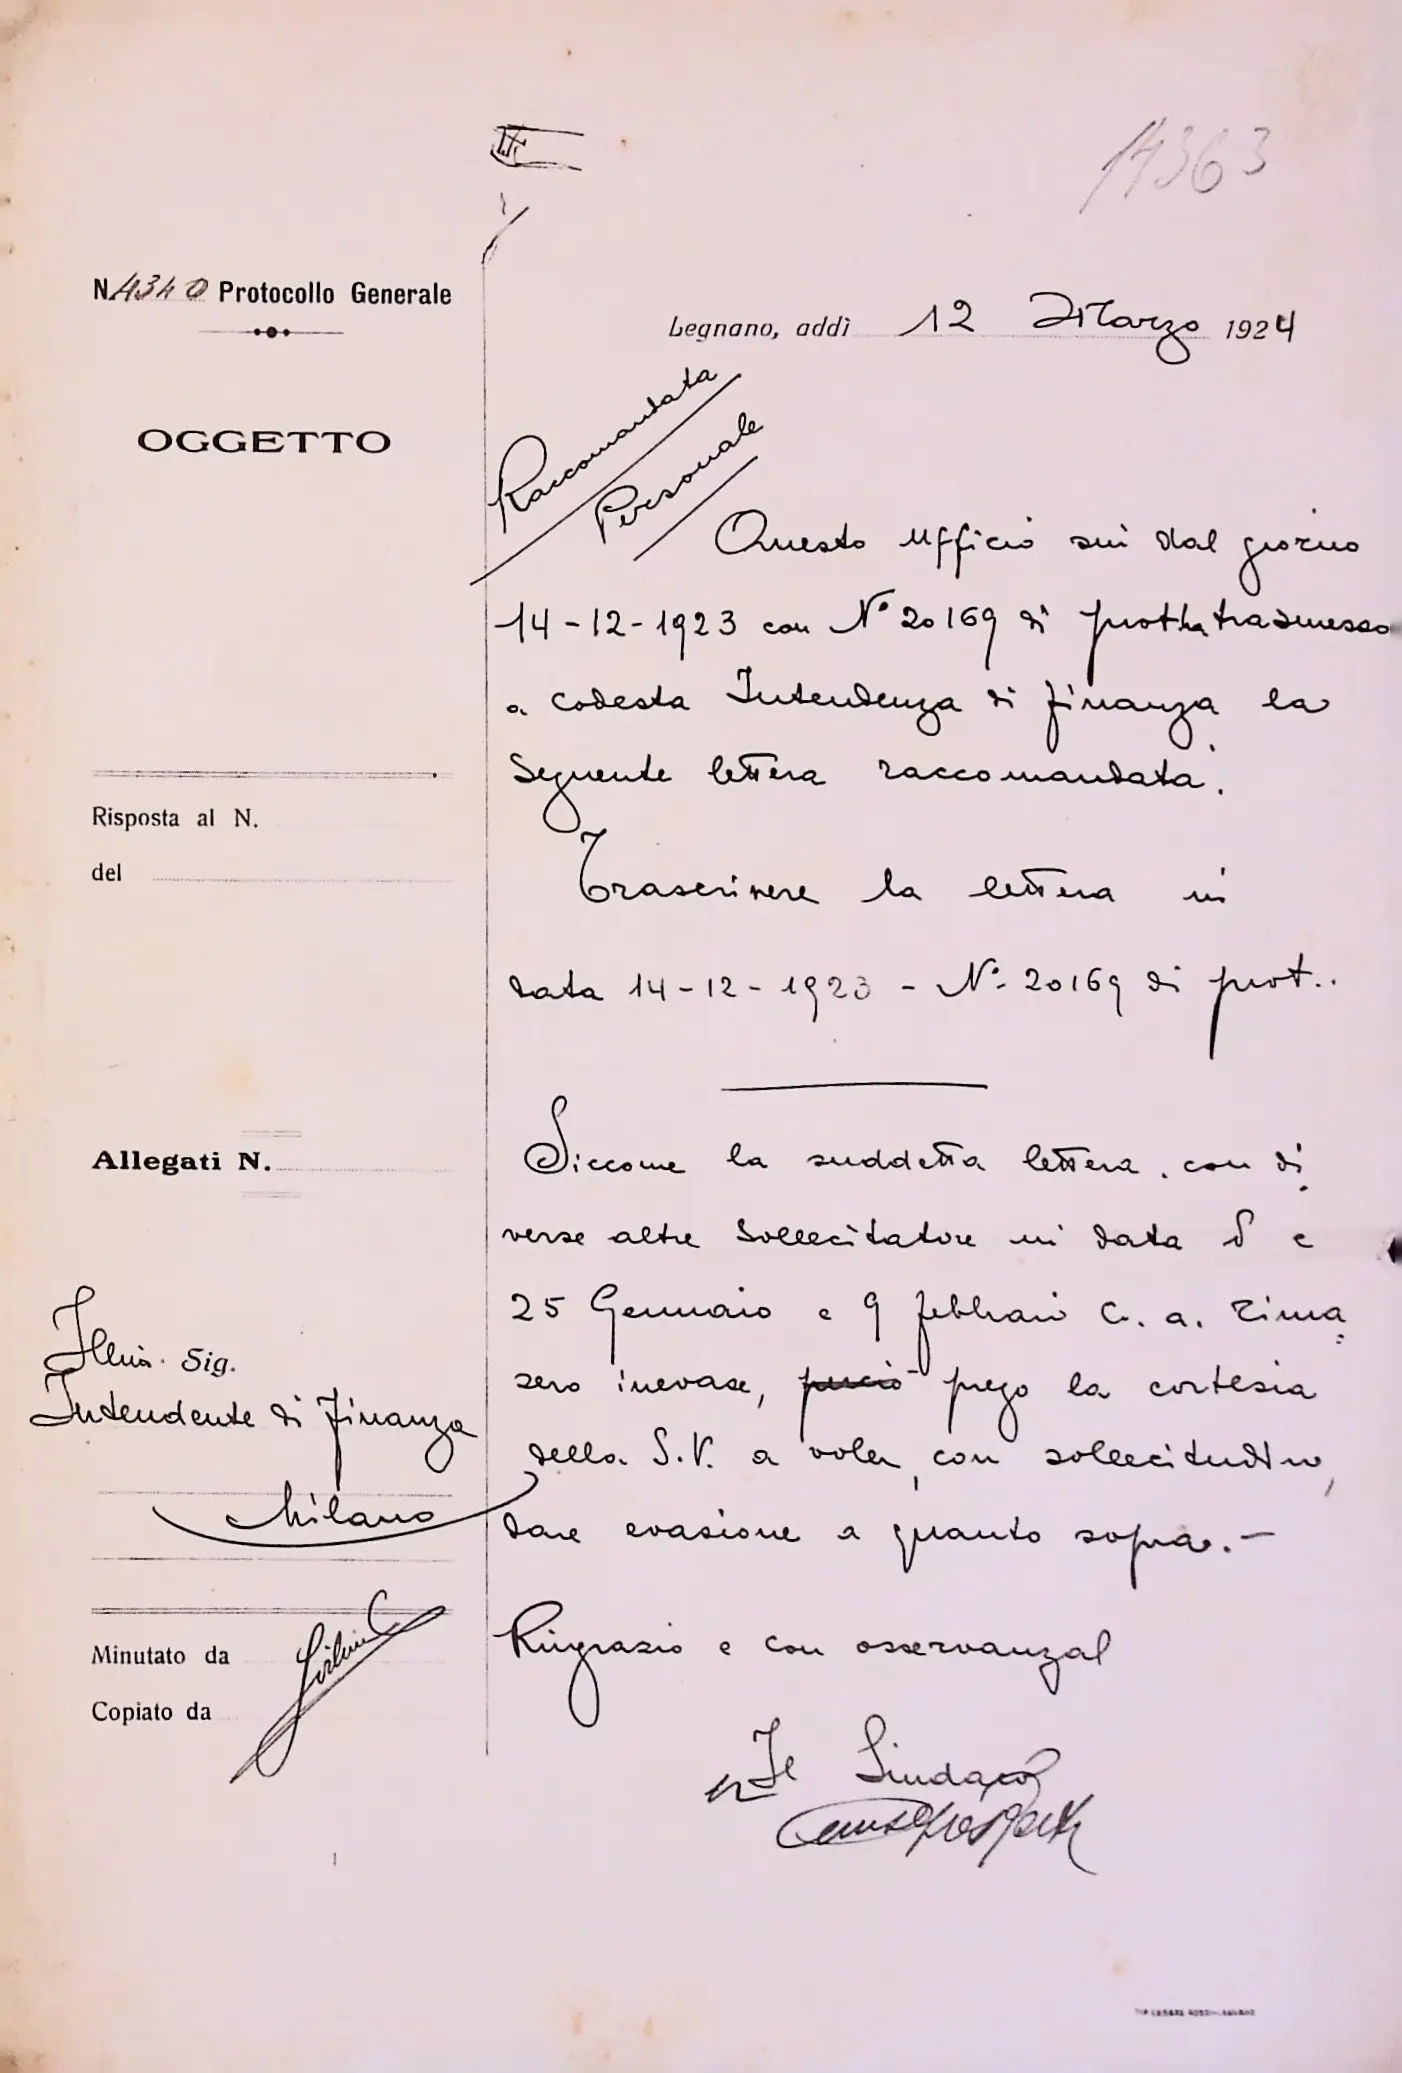 14363
N. 4340 Protocollo Generale
Legnano, addì 12 Marzo 1924
OGGETTO
Raccomandata
Personale
Questo ufficio sin dal giorno
14-12-1923 con N° 20169 di trasmesso
a codesta Intendenza di finanza la
Seguente lettera raccomandata:
Trascrivere la lettera in
data 14-12-1923 - N° 20169 di prot..
Risposta al N.
del
Allegati N.
Siccome la suddetta lettera, con di
verse altre Sollecitatore in data e
25 Gennaio e 9 febbraio c. a. rima=
sero inevase, perciò prego la cortesia
della S.V. a voler, con sollecitudine,
dare evasione a quanto sopra. -
Ringrazio e con osservanza
Illmo. Sig.
Intendente di Finanza
Milano
Minutato da
Copiato da
Il Sindaco